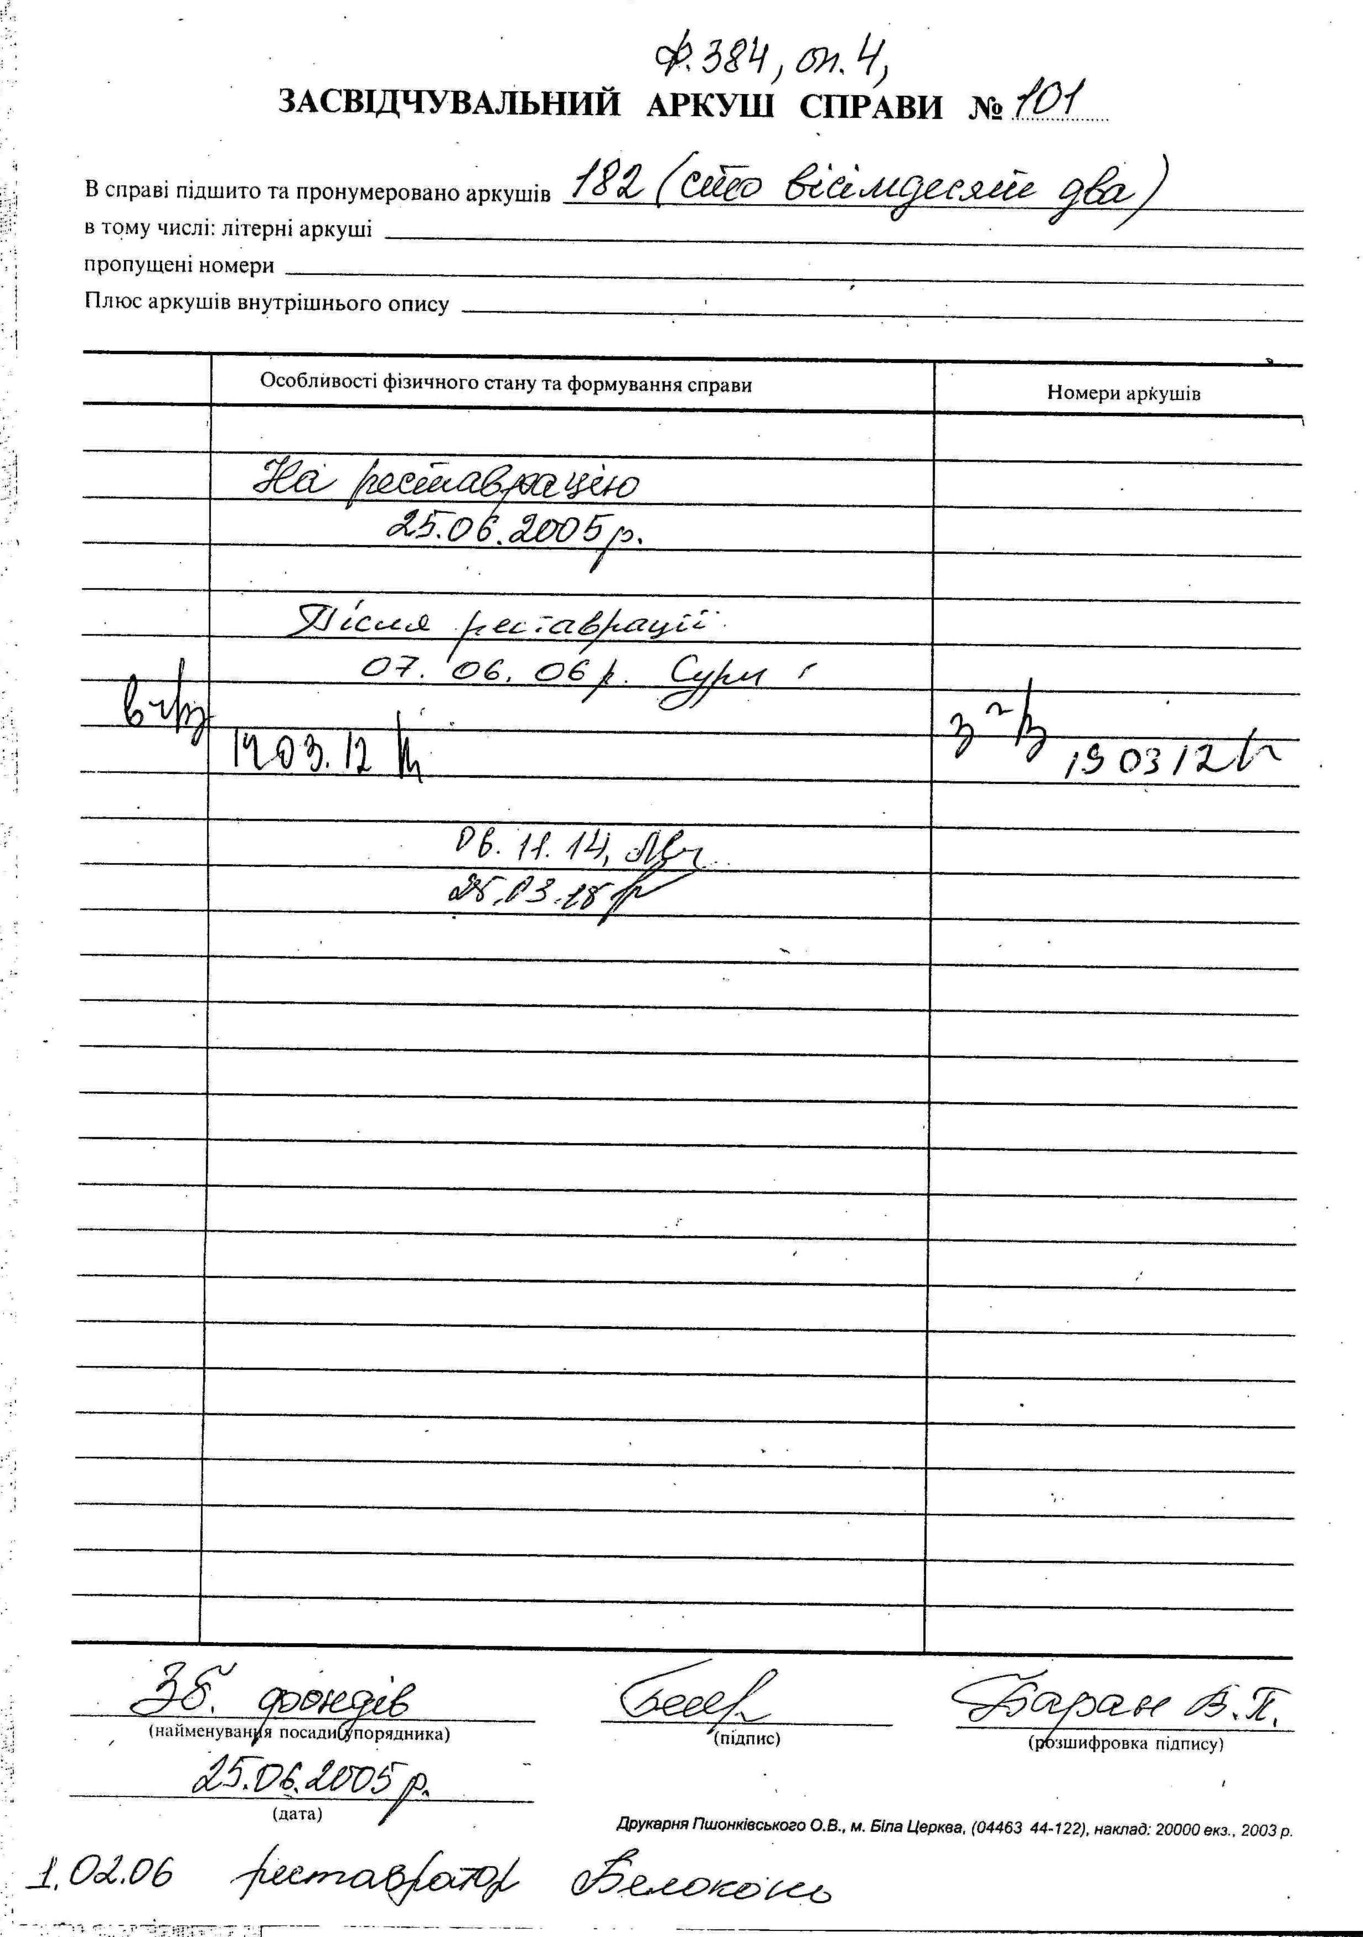 ф.384, оп.4,
ЗАСВІДЧУВАЛЬНИЙ АРКУШ СПРАВИ № 101
В справі підшито та пронумеровано аркушів 182 (сто вісімдесят два)
в тому числі: літерні аркуші
пропущені номери
Плюс аркушів внутрішнього опису
Особливості фізичного стану та формування справи Номери аркушів
На реставрацію
25.06.2005р.
Після реставрації
07. 06. 06р.
19 03. 12 19 03 12
06. 11. 14,
25.03.18
Зб. фондів Баран В.П.
(найменування посади упорядника) (підпис) (розшифровка підпису)
25.06.2005р.
(дата)
Друкарня Пшонківського О.В., м. Біла Церква, (04463 44-122), наклад: 20000 екз., 2003 р.
1.02.06 реставратор Белоконь